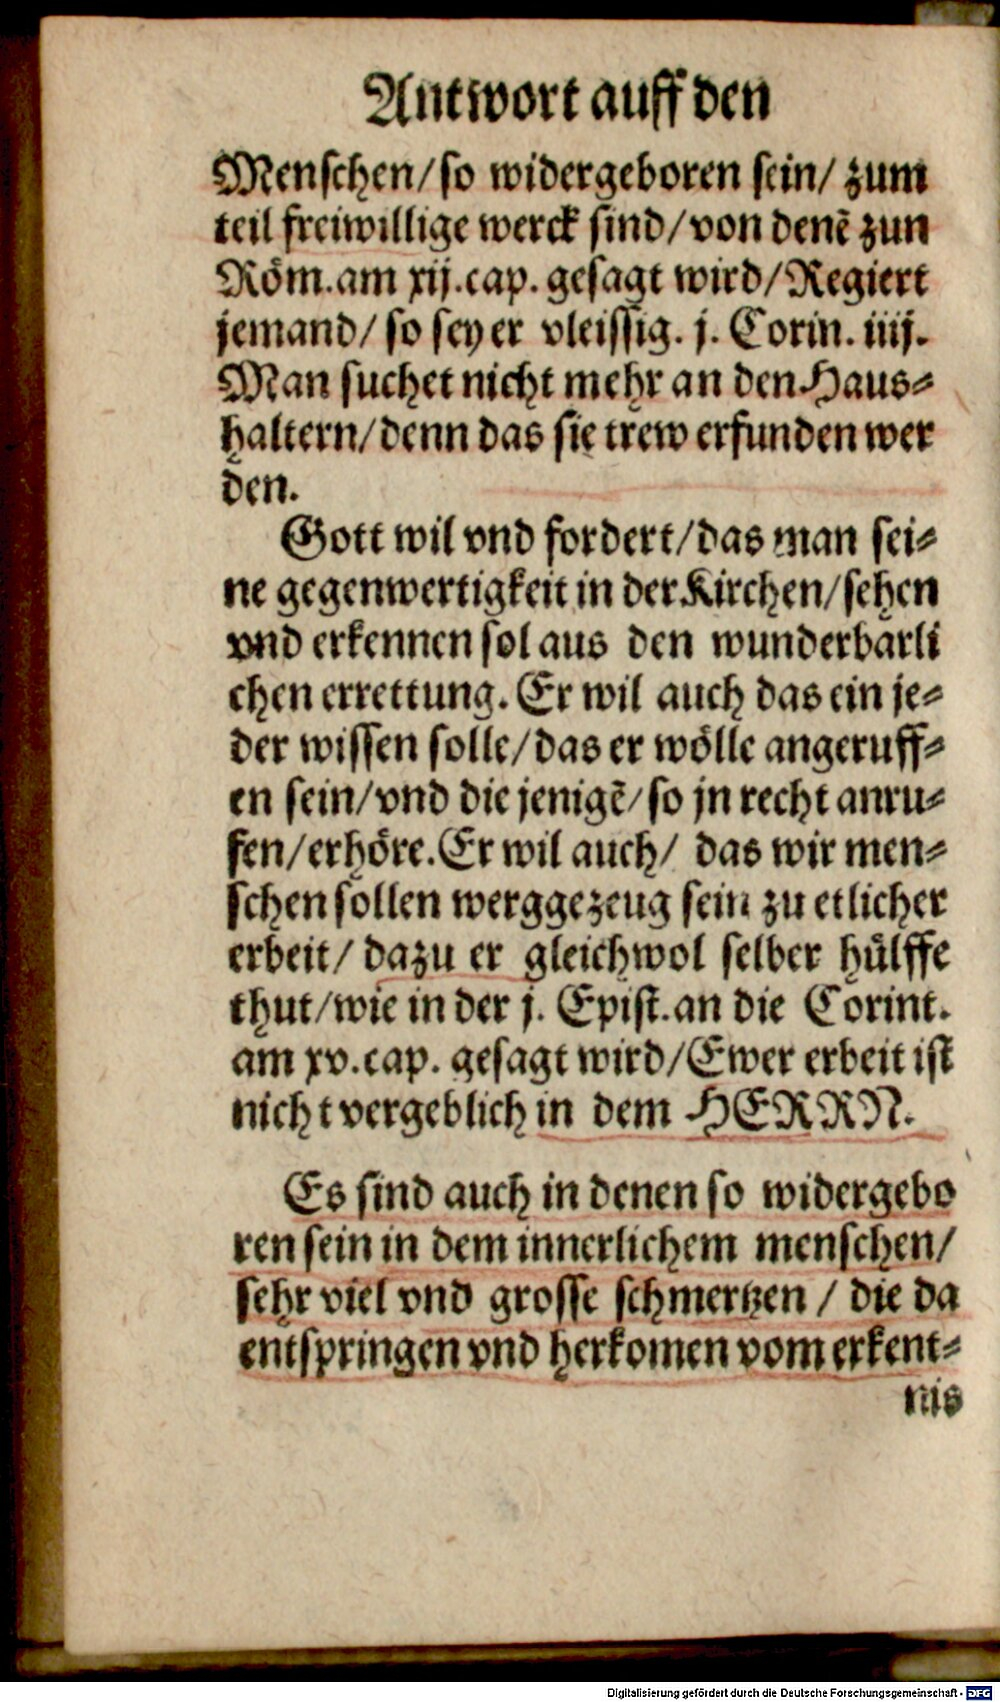 Antwort auff den
Menschen/ so widergeboren sein/ zum
teil freiwillige werck sind/ von denē zun
Röm. am xij. cap. gesagt wird/ Regiert
jemand/ so sey er vleissig. j. Corin. iiij.
Man suchet nicht mehr an den Haus⸗
haltern/ denn das sie trew erfunden wer
den.
Gott wil vnd fordert/ das man sei⸗
ne gegenwertigkeit in der Kirchen/ sehen
vnd erkennen sol aus den wunderbarli
chen errettung. Er wil auch das ein je⸗
der wissen solle/ das er wölle angeruff⸗
en sein/ vnd die jenigē/ so jn recht anru⸗
fen/ erhöre. Er wil auch/ das wir men⸗
schen sollen werggezeug sein zu etlicher
erbeit/ dazu er gleichwol selber hülffe
thut/ wie in der j. Epist. an die Corint.
am xv. cap. gesagt wird/ Ewer erbeit ist
nicht vergeblich in dem HERRN.
Es sind auch in denen so widergebo
ren sein in dem innerlichem menschen/
sehr viel vnd grosse schmertzen / die da
entspringen vnd herkomen vom erkent⸗
nis
Digitalisierung gefördert durch die Deutsche Forschungsgemeinschaft - DFG